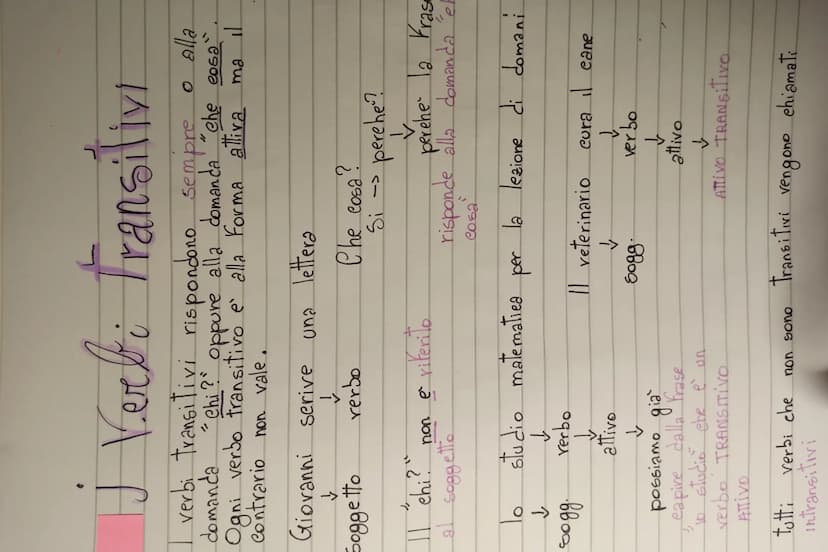 I Verbi Transitivi
I verbi transitivi rispondono sempre o alla
domanda "chi?" oppure alla domanda "che cosa".
Ogni verbo transitivo è alla forma attiva ma il
contrario non vale.
Giovanni scrive una lettera
↓ ↓
soggetto verbo
Che cosa?
Si -> perchè?
↓
perchè la frase
risponde alla domanda "ch
cosa"
Il "chi?" non è riferito
al soggetto
Io studio matematica per la lezione di domani
↓ ↓
sogg. verbo
↓
attivo
↓
possiamo già
capire dalla frase
"io studio" che è un
verbo TRANSITIVO
ATTIVO
Il veterinario cura il cane
↓ ↓
sogg. verbo
↓
attivo
↓
ATTIVO TRANSITIVO
tutti i verbi che non sono transitivi vengono chiamati
intransitivi